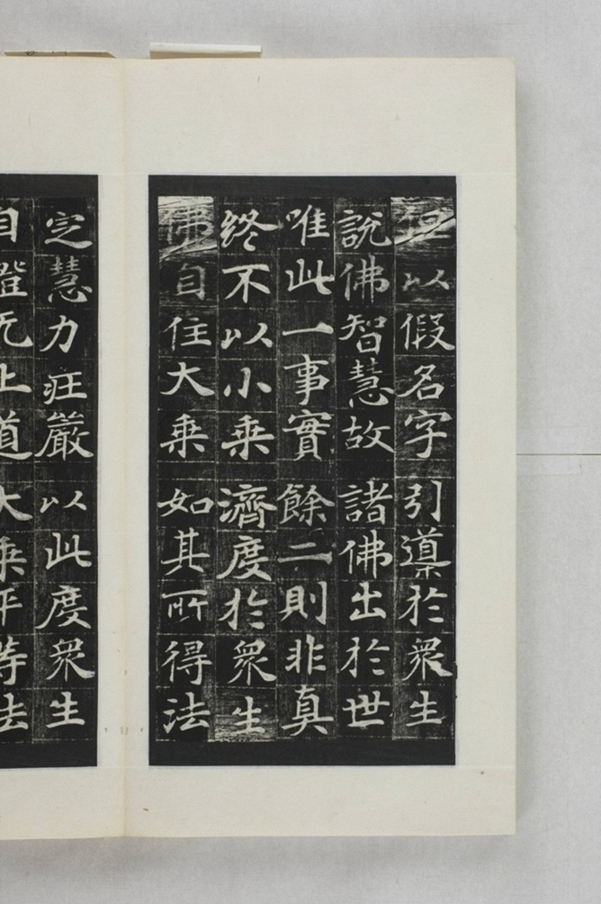 但以假名字引導於衆生
說佛智慧故諸佛出於世
唯此一事實餘二則非真
終不以小乘濟度於衆生
佛自住大乘如其所得法
定慧力㽵嚴以此度衆生
自證无上道大乘平等法